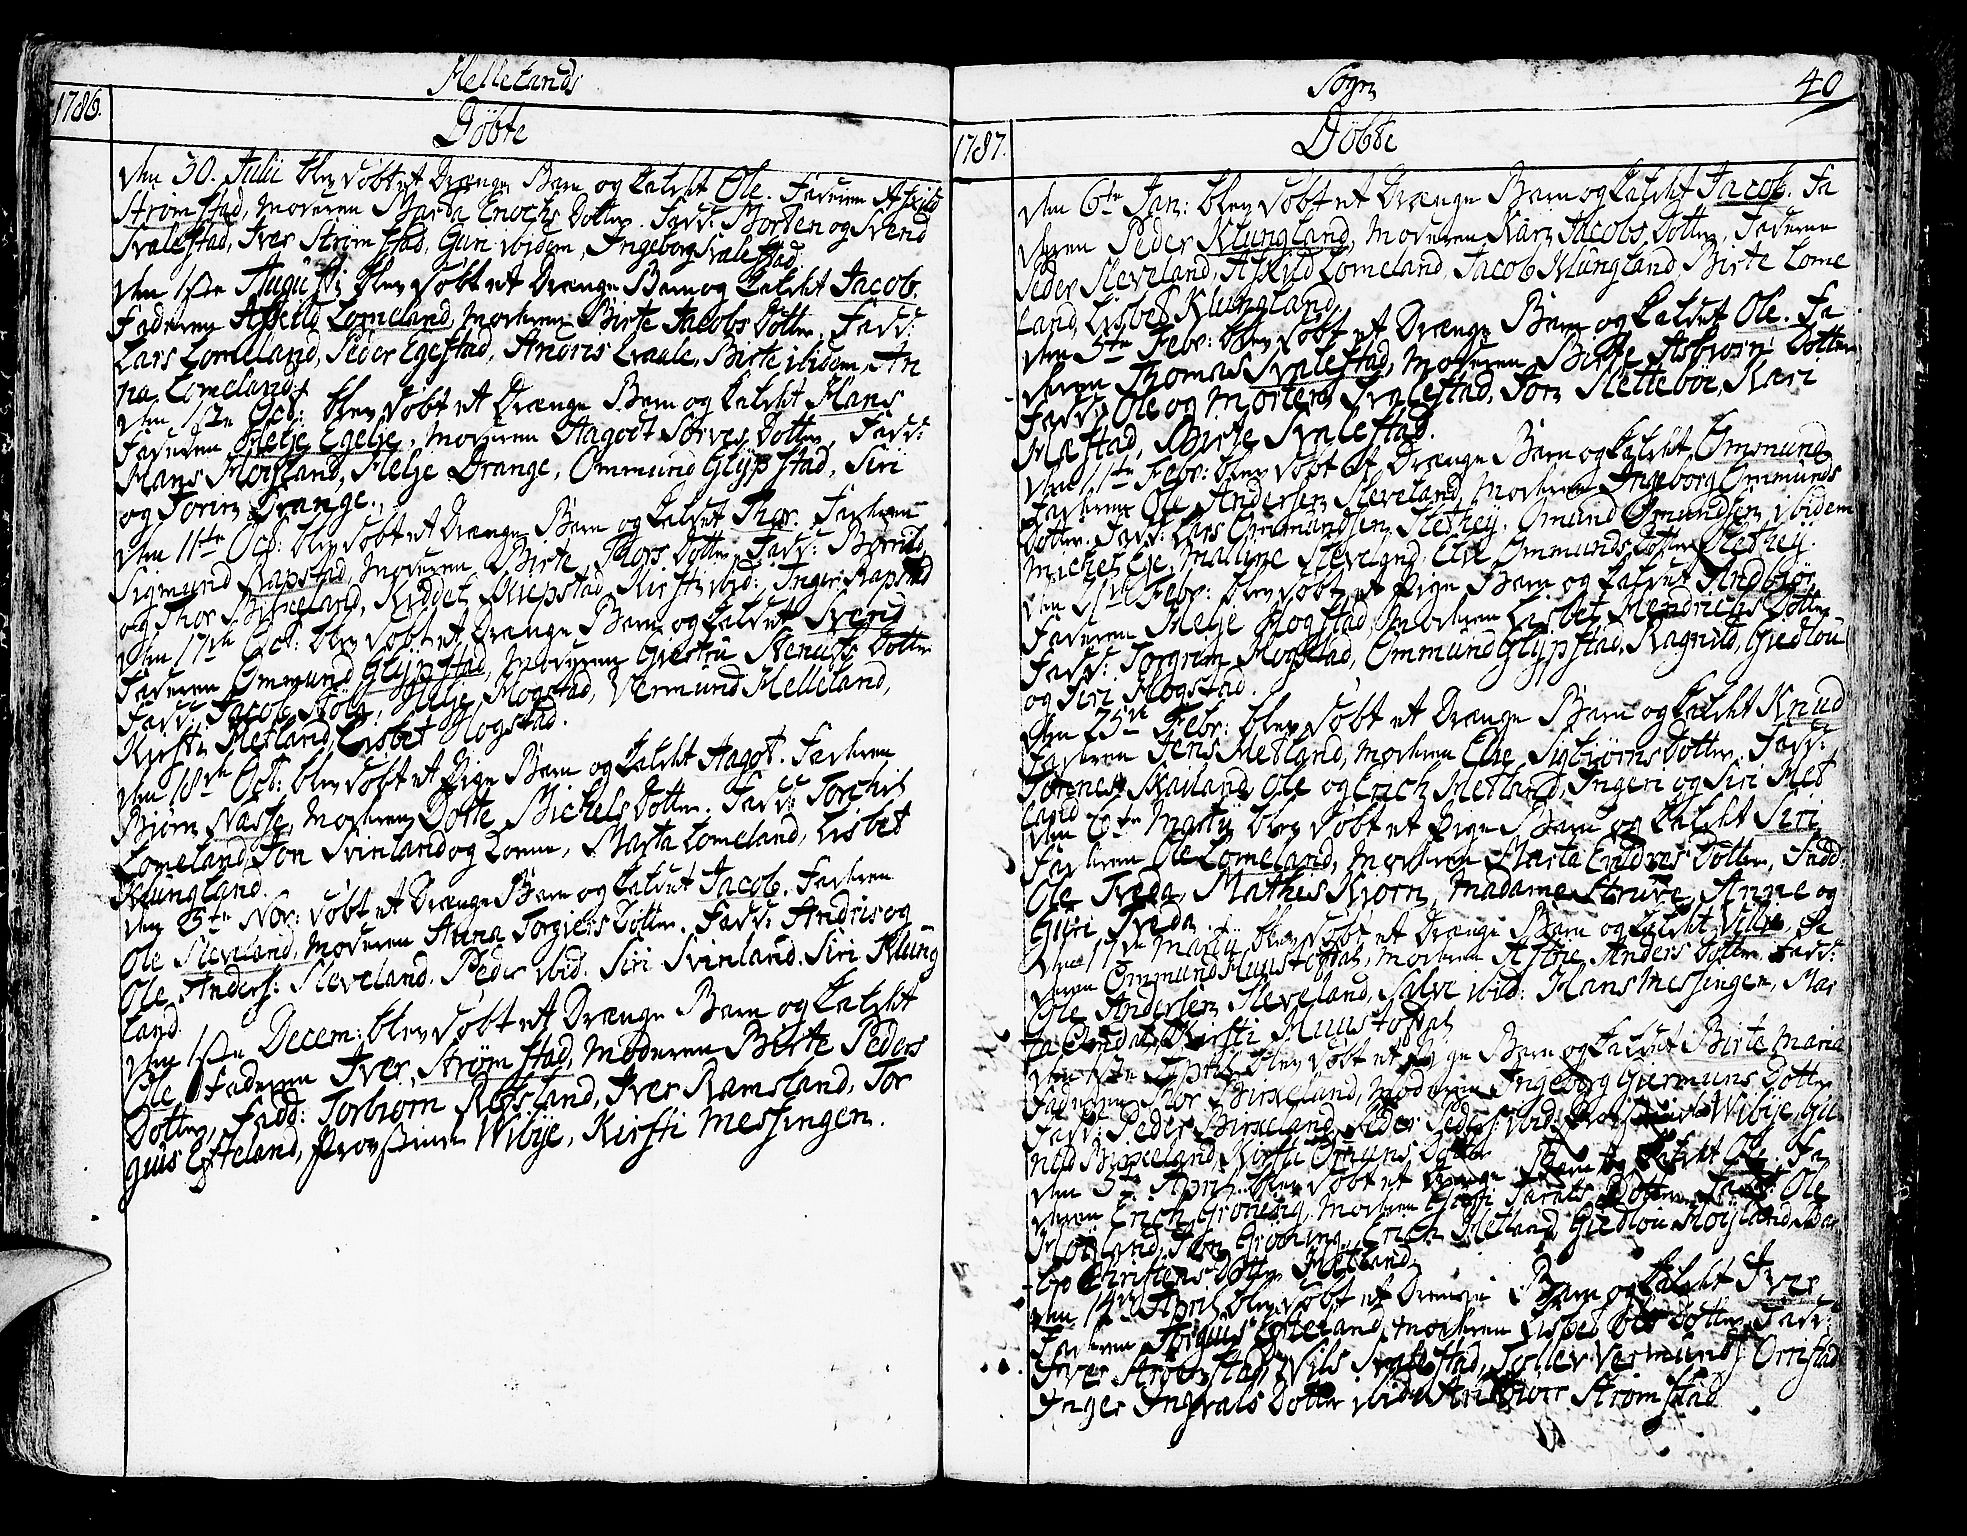 Hellelands
1786.
Döbte
den 30. Julii blev döbt et Drænge Barn og kaldet Ole. Faderen Askild
Strømstad, Moderen Marta Enochs Dotter. Fadd: Morten og Svend
Svalestad, Iver Strømstad, Guri ibidem, Ingeborg Svalestad.
den 1ste Augusti blev döbt et Drænge Barn og kaldet Jacob.
Faderen Askild Lomeland, Moderen Birte Jacobs Dotter. Fadd:
Lars Lomeland, Peder Egestad, Andris Lvaale, Birte ibidem, An
na Lomeland.
den 1ste Oct: blev döbt et Drænge Barn og kaldet Hans
Faderen Helje Egelje, Moderen Aagodt Sørves Dotter, Fadd:
Hans Moijland, Helje Drange, Ommund Glypstad, Siri
og Torin Drange.
den 11te Oct: blev döbt et Drænge Barn og kaldet Thor. Faderen
Sigmund Rapstad, Moderen Birte Thors Dotter, Fadd:
og Thor Birkeland, Kiddel Rapstad, Kirsti ibid: Inger Rapstad
den 17de Oct: blev döbt et Drænge Barn og kaldet Svend
Faderen Ommund Glypstad, Moderen Giertru Stenuls Dotter
Fadd: Jacob Helje Hogstad, Vermund Helleland,
Kirsti Metland, Lisbet Hogstad.
den 18de Oct: blev döbt et Pige Barn og kaldet Aagot. Faderen
Biørn Nasse, Moderen Dotte Michels Dotter. Fadd: Torchil
Lomeland, Jon Svinland og Marta Lomeland, Lisbet
Klungland.
den 3te Nov: döbt et Drænge Barn og kaldet Jacob. Faderen
Ole Sleveland, Moderen Anna Torgiers Dotter. Fadd: Andris og
Ole Anders: Sleveland. Peder ibid. Siri Svinland. Siri Klung
land.
den 1ste Decem: blev döbt et Drænge Barn og kaldet
Ole, Faderen Iver Strømstad, Moderen Birte Peders
Dotter, Fadd: Torbiørn Røsland, Iver Ramsland, Tor
guis Efteland, Provstinde Wibÿe, Kirsti Messingen.
Sogn
40
1787.
Döbte
den 6te Jan: blev döbt et Drænge Barn og kaldet Jacob. Fa
deren Peder Klungland, Moderen Kari Jacobs Dotter, Fadderne
Peder Sleveland, Askild Lomeland, Jacob Klungland, Birte Lome
land, Lisbet Klungland.
den 5te Febr: blev döbt et Drænge Barn og kaldet Ole. Fa
deren Thomas Svalestad, Moderen Birte Asbiørns Dotter
Fadd: Ole og Morten Svalestad, Jon Slettebøe, Kari
Mæstad, Birte Svalestad.
den 11te Febr: blev döbt et Drænge Barn og kaldet Ommund
Faderen Ole Andersen Sleveland, Moderen Ingeborg Ommunds
Dotter. Fadd: Lars Omundsen Slethey. Omund Omundsen ibidem
Michel Eje, Malene Sleveland, Else Ommunds Dotter Slethey.
den 21de Febr: blev döbt et Pige Barn og kaldet Andbiør
Faderen Helje Hogstad, Moderen Lisbet Hendrichs Dotter
Fadd: Torgrim Hogstad, Ommund Glypstad, Ragnild, Giedlou
og Siri Hogstad.
den 25de Febr: blev döbt et Drænge Barn og kaldet Knud
Faderen Jens Metland, Moderen Else Sigbiørns Dotter, Fadd:
Tønnes Skaaland, Ole og Erich Metland, Ingeri og Siri Met
land
den 6te Martij blev döbt et Pige Barn og kaldet Siri
Faderen Ole Lomeland, Moderen Marta Endres Dotter, Fadd
Ole Tveda, Mathes Kjorn, Madame Struve, Anne og
Guri Tveda.
den 11de Martij blev döbt et Drænge Barn og kaldet Ville. Fa
deren Ommund Anders Dotter, Fadd:
Ole Andersen Sleveland, Salve ibid: Hans Messingen, Mar
ta Kirsti
den April blev döbt et Pige Barn og kaldet Birte Maria
Faderen Thor Birkeland, Moderen Ingeborg Giermuns Dotter
Fadd: Peder Birkeland, Peder Peders: ibid: Provstinde Wibÿe, Gu
nild Birkeland, Kirsti Omuns Dotter
den 5te April blev döbt et Drænge Barn og kaldet Ole. Fa
deren Erich Grøning, Moderen Taralds Dotter, Fadd: Ole
Jon Grøning, Erich Metland, Giedlou Moijland,
Christens Dotter Metland.
den 14de April blev döbt et Drænge Barn og kaldet Iver,
Faderen Torguis Efteland, Moderen Lisbet Ols Dotter, Fadd:
Iver Strømstad, Nils Svalestad, Tollev Vermunds: Orrestad
Inger Ingvals Dotter ibidem Strømstad